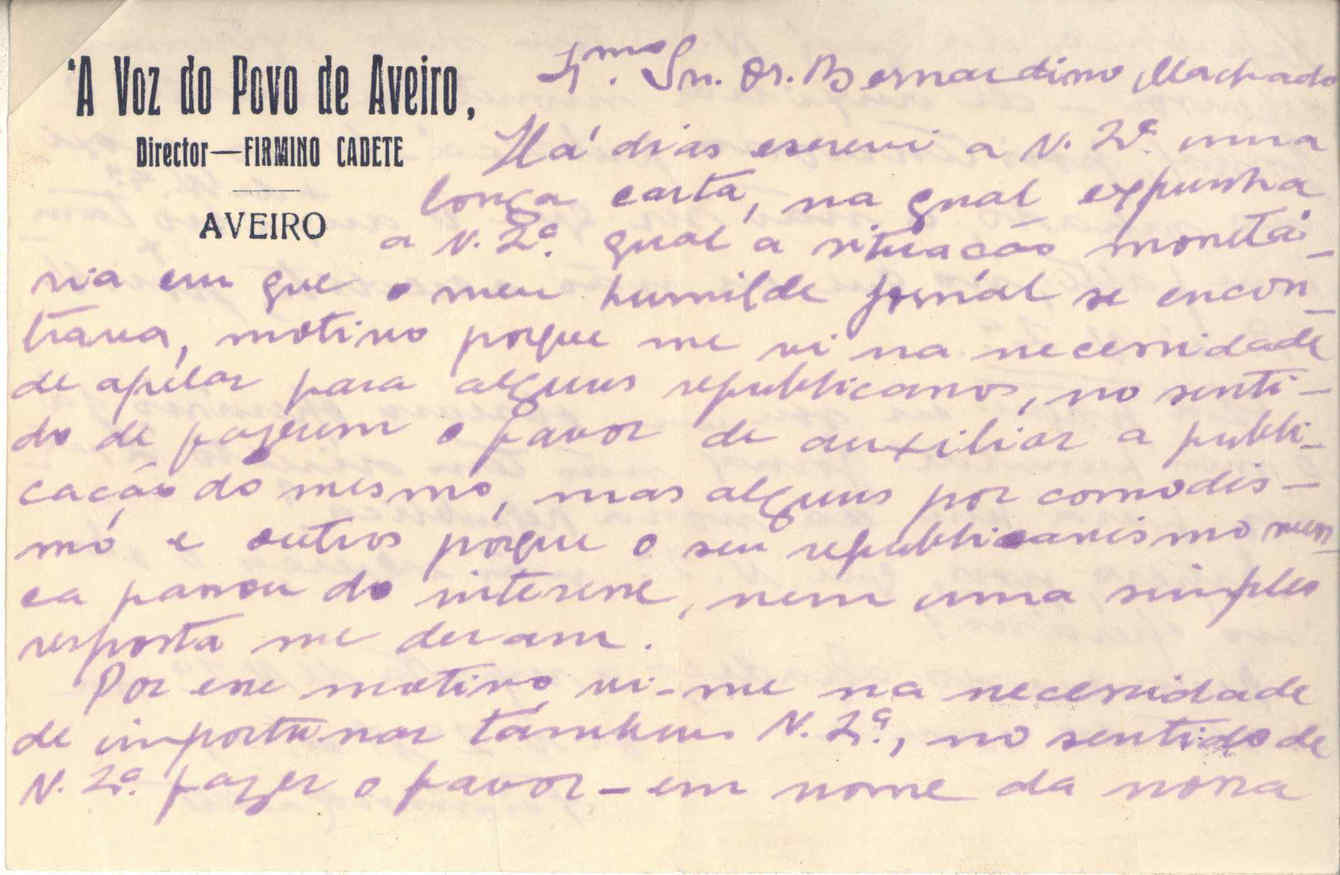 'A Voz do Povo de Aveiro,
Director—FIRMINO CADETE
AVEIRO
Snr. Dr. Bernardino Machado
Há dias escrevi a V. Ex.ª uma
longa carta, na qual expunha
a V. Ex.ª qual a situação monetá-
ria em que o meu humilde jornál se encon-
trava, motivo porque me vi na necessidade
de apelar para alguns republicanos, no senti-
do de fazerem o favor de auxiliar a publi-
cação do mesmo, mas alguns por comodis-
mo e outros porque o seu republicanismo nun-
ca passou do interesse, nem uma simples
resposta me deram.
Por esse motivo vi-me na necessidade
de importunar tambem V. Ex.ª, no sentido de
V. Ex.ª fazer o favor - em nome da nossa